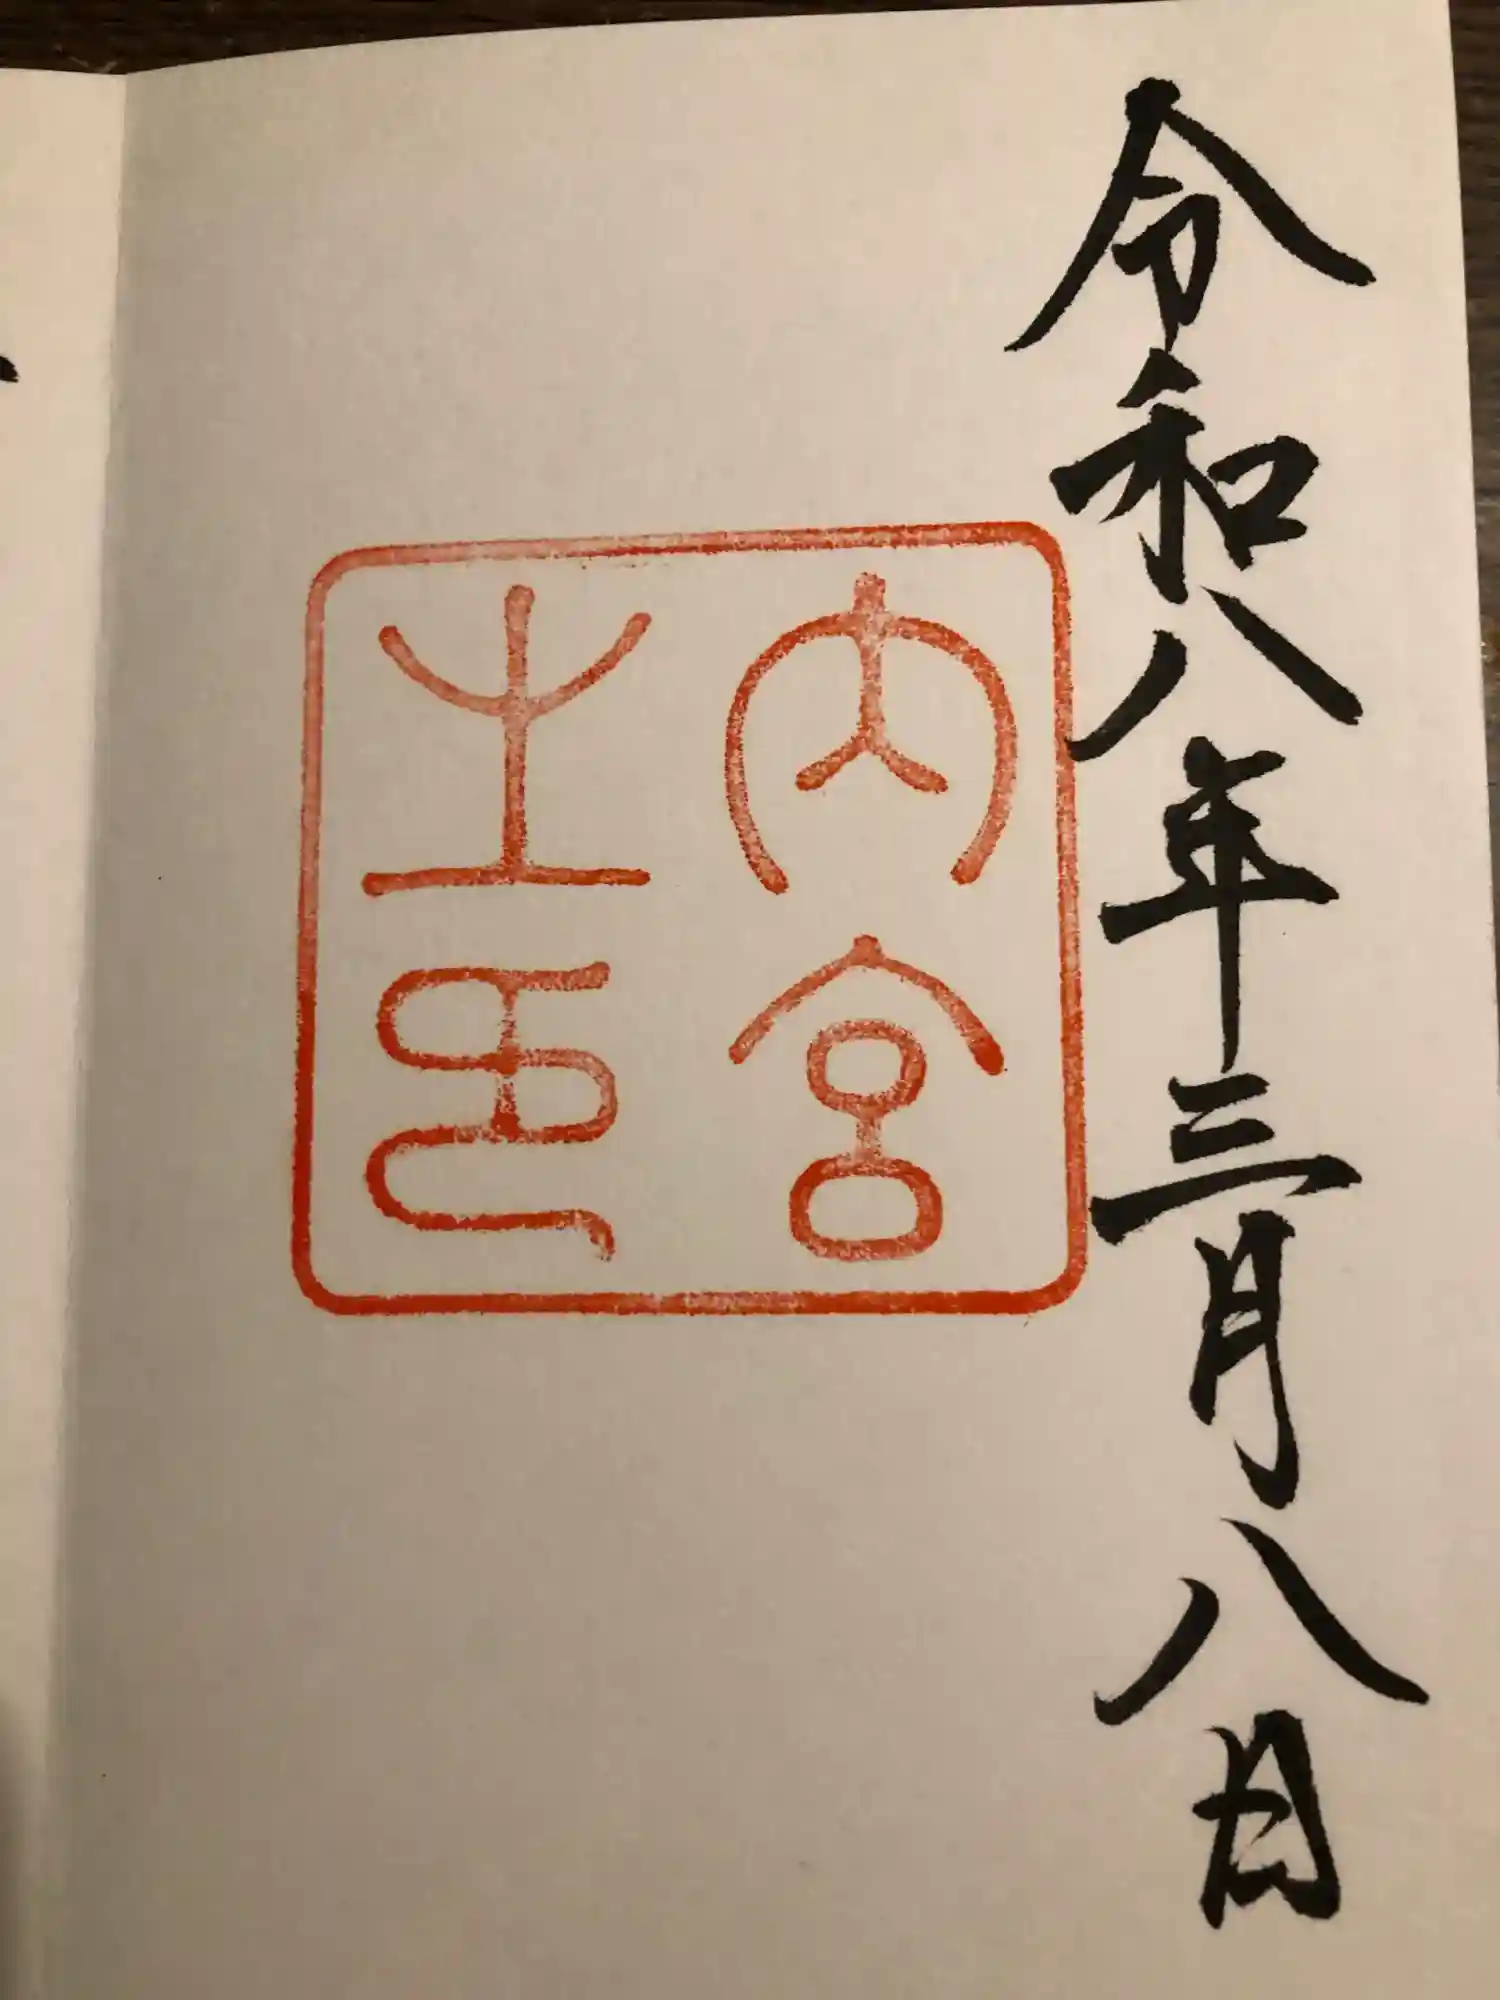 令和八年三月八日
内宮
之印